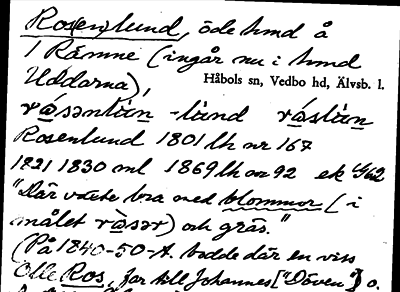 Ros(en)lund, öde hmd å
1 Rämne (ingår nu i hmd
Uddarna),
Håbols sn, Vedbo hd, Älvsb. l.
-lànd
Rosenlund 1801 lh nr 167
1821 1830 ml 1869 lh nr 92 ek
"Där växte bra med blommor (i
målet ròsər) och gräs."
(På 1840-50-t. bodde där en viss
Olle Ros, far till Johannes ["Döven"] o.